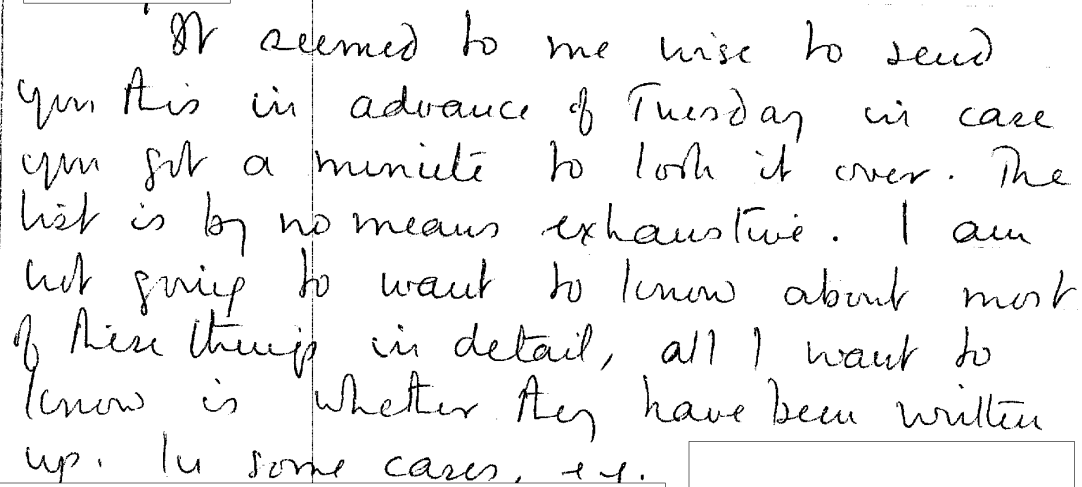 It seemed to me wise to send
you this in advance of Tuesday in case
you got a minute to look it over. The
list is by no means exhaustive. I am
not going to want to know about most
of these things in detail, all I want to
know is whether they have been written
up. In some cases, e.g.